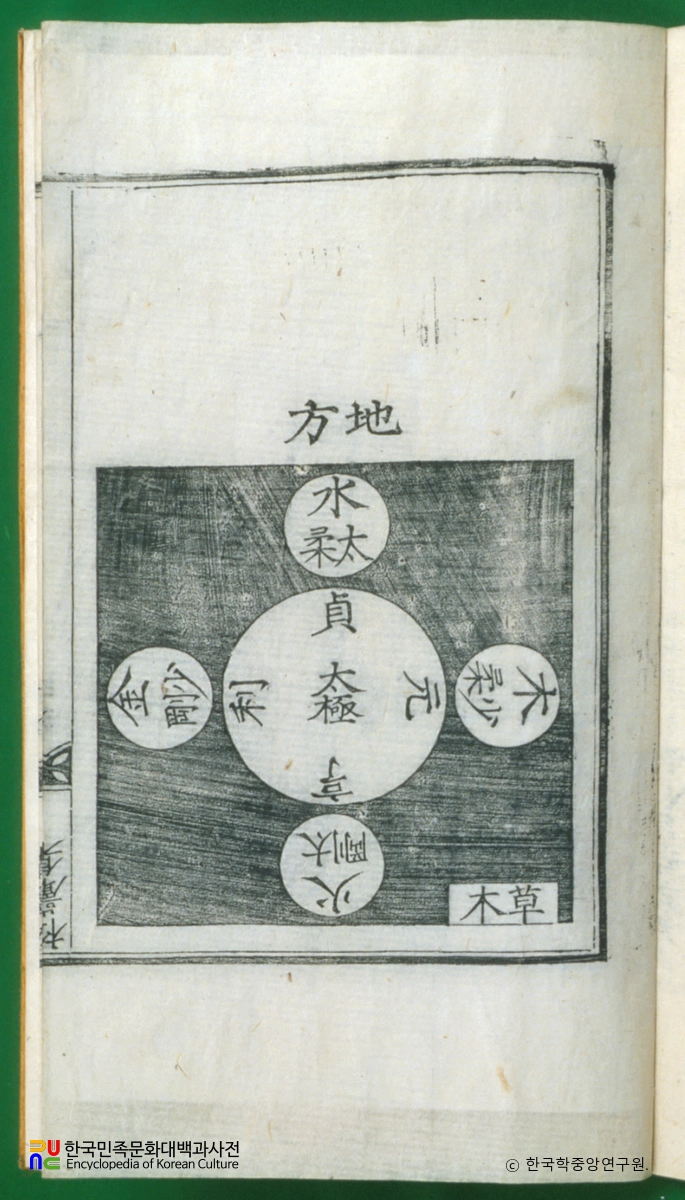 地方
水
太柔
貞
木
少柔
元
太極
利
少剛
金
亨
太剛
火
草木
한국민족문화대백과사전
Encyclopedia of Korean Culture
ⓒ 한국학중앙연구원.